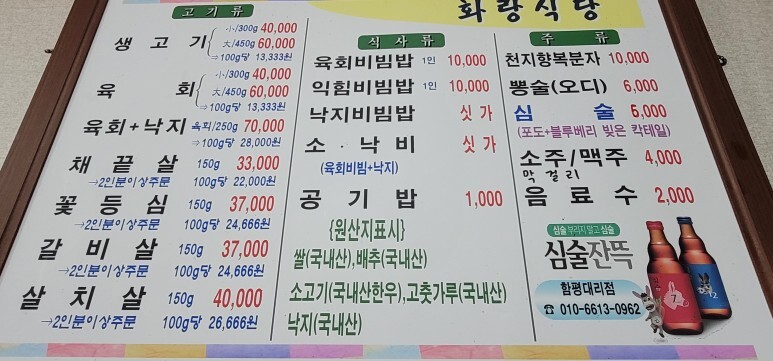 화랑식당
고기류
생고기 小/300g 40,000
大/450g 60,000
⇒100g당 13,333원
육회 小/300g 40,000
大/450g 60,000
⇒100g당 13,333원
육회+낙지 육회/250g 70,000
⇒100g당 28,000원
채끝살 150g 33,000
→2인분이상주문 100g당 22,000원
꽃등심 150g 37,000
→2인분이상주문 100g당 24,666원
갈비살 150g 37,000
→2인분이상주문 100g당 24,666원
살치살 150g 40,000
→2인분이상주문 100g당 26,666원
식사류
육회비빔밥 1인 10,000
익힘비빔밥 1인 10,000
낙지비빔밥 싯가
소·낙비 싯가
(육회비빔+낙지)
공기밥 1,000
{원산지표시}
쌀(국내산),배추(국내산)
소고기(국내산한우),고춧가루(국내산)
낙지(국내산)
주류
천지향복분자 10,000
뽕술(오디) 6,000
심술 5,000
(포도+블루베리 빚은 칵테일)
소주/맥주 4,000
막걸리
음료수 2,000
심술부리지 말고 심술
심술잔뜩
함평대리점
☎ 010-6613-0962
7